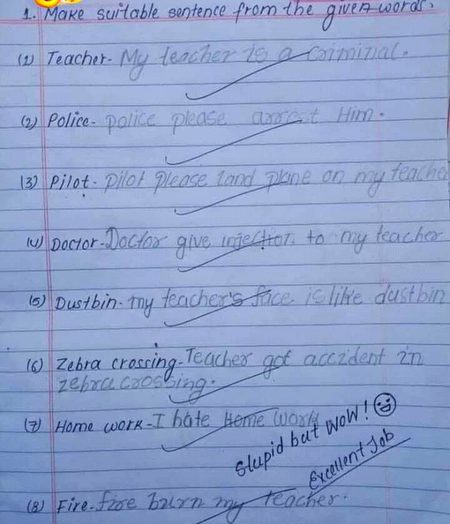 1. Make suitable sentence from the given words.
(1) Teacher- My teacher is a criminal.
(2) Police- police please arrest Him.
(3) Pilot- pilot please land plane on my teache
(4) Doctor- Doctor give injection to my teacher
(5) Dustbin- my teacher's face is like dustbin
(6) Zebra crossing- Teacher got accident in
zebra crossing.
(7) Home work- I hate Home work
Stupid but WOW!
Excellent Job
(8) Fire- fire burn my teacher.